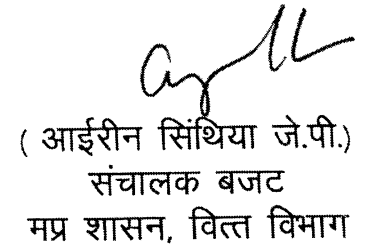 ( आईरीन सिंथिया जे.पी.)
संचालक बजट
मप्र शासन, वित्त विभाग